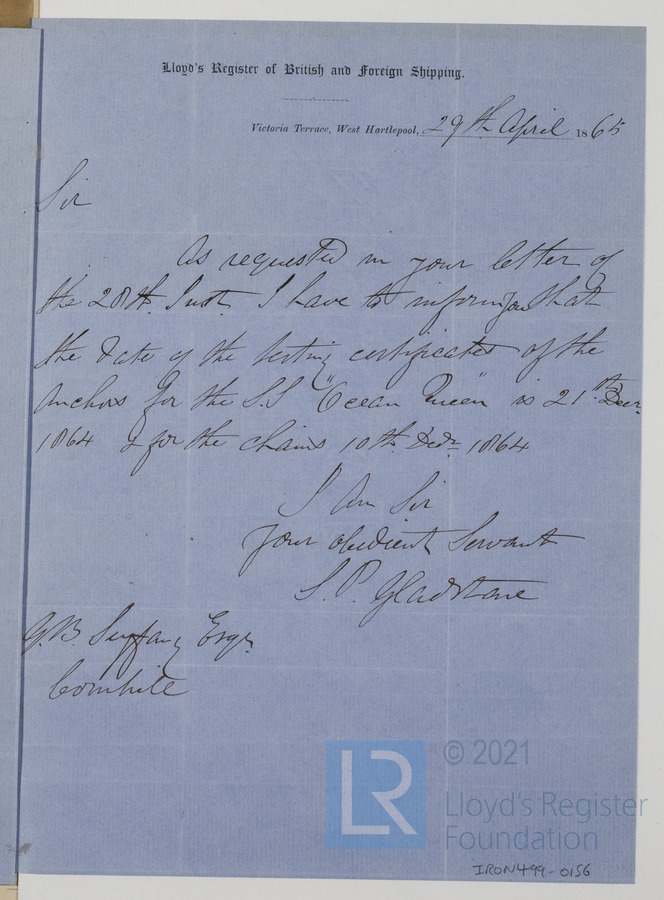 Lloyd's Register of British and Foreign Shipping.
Victoria Terrace, West Hartlepool, 29th April 1865
Sir
As requested in your letter of
the 28th. Inst. I have to inform you that
the date of the testing certificates of the
Anchors for the S.S "Ocean Queen" is 21st. Decr.
1864 & for the chains 10th. Decr. 1864
I Am Sir
your obedient Servant
S. P. Gladstone
G. B. Seyfang Esqr.
Cornhill
LR
© 2021
Lloyd's Register
Foundation
IRON499-0156